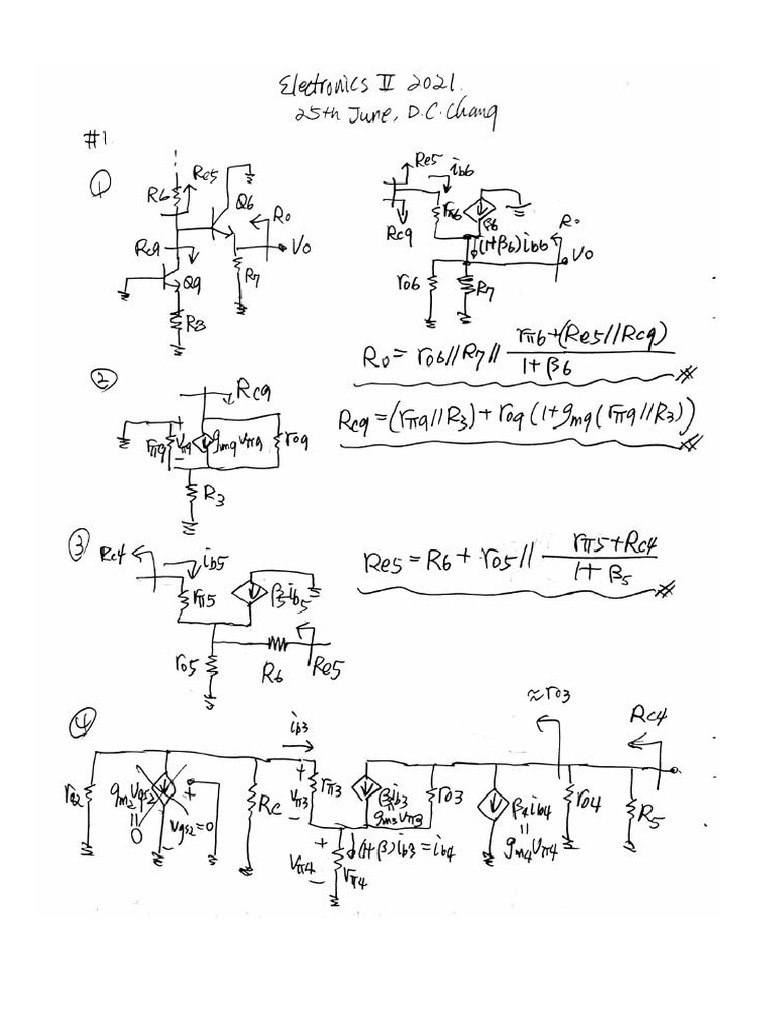 Electronics II 2021.
25th June, D.C. Chang
#1
①
R6
Re5
Q6
Ro
Vo
Rc9
Q9
R7
R3
Re5
ib6
rπ6
β6
Rc9
(1+β6)ib6
Ro
Vo
ro6
R7
Ro = ro6//R7// rπ6+(Re5//Rc9)
1+β6
②
Rc9
rπ9
+
Vπ9
−
gm9Vπ9
ro9
R3
Rc9 = (rπ9//R3) + ro9 (1+gm9(rπ9//R3))
③
Rc4
ib5
rπ5
β5ib5
ro5
R6
Re5
Re5 = R6 + ro5// rπ5+Rc4
1+β5
④
ib3
≈ro3
Rc4
ro2
gm2Vgs2
=
0
+
Vgs2=0
−
Rc
+
Vπ3
−
rπ3
βib3
=
gm3Vπ3
ro3
β4ib4
=
gm4Vπ4
ro4
R5
+
Vπ4
−
rπ4
(1+β)ib3=ib4